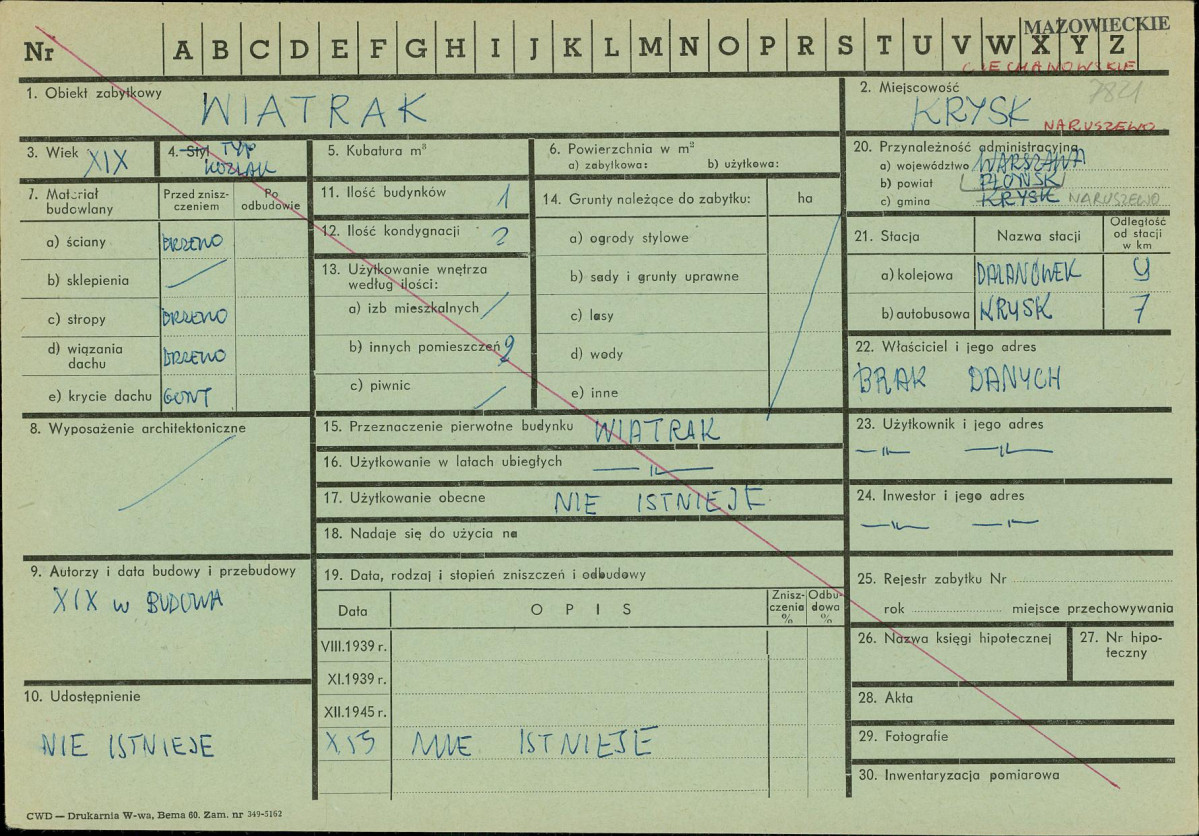 MAZOWIECKIE
Nr A B C D E F G H I J K L M N O P R S T U V W X Y Z
CIECHANOWSKIE
784
1. Obiekt zabytkowy
WIATRAK
2. Miejscowość
KRYSK
NARUSZEWO
3. Wiek XIX
4. Styl TYP
KOŹLAK
5. Kubatura m³
6. Powierzchnia w m²
a) zabytkowa: b) użytkowa:
20. Przynależność administracyjna
a) województwo WARSZAWA
b) powiat PŁOŃSK
c) gmina KRYSK NARUSZEWO
7. Materiał budowlany
Przed zniszczeniem
Po odbudowie
a) ściany DRZEWO
b) sklepienia
c) stropy DRZEWO
d) wiązania dachu DRZEWO
e) krycie dachu GONT
11. Ilość budynków 1
12. Ilość kondygnacji 2
13. Użytkowanie wnętrza
według ilości:
a) izb mieszkalnych
b) innych pomieszczeń 2
c) piwnic
14. Grunty należące do zabytku: ha
a) ogrody stylowe
b) sady i grunty uprawne
c) lasy
d) wody
e) inne
21. Stacja
Nazwa stacji
Odległość
od stacji
w km
a) kolejowa DALANÓWEK 9
b) autobusowa KRYSK 7
22. Właściciel i jego adres
BRAK DANYCH
8. Wyposażenie architektoniczne
15. Przeznaczenie pierwotne budynku WIATRAK
16. Użytkowanie w latach ubiegłych —〃—
17. Użytkowanie obecne NIE ISTNIEJE
18. Nadaje się do użycia na
23. Użytkownik i jego adres
—〃— —〃—
24. Inwestor i jego adres
—〃— —〃—
9. Autorzy i data budowy i przebudowy
XIX w BUDOWA
19. Data, rodzaj i stopień zniszczeń i odbudowy
Data
OPIS
Zniszczenia
%
Odbudowa
%
VIII.1939 r.
XI.1939 r.
XII.1945 r.
NIE ISTNIEJE
25. Rejestr zabytku Nr
rok miejsce przechowywania
26. Nazwa księgi hipotecznej
27. Nr hipoteczny
28. Akta
29. Fotografie
30. Inwentaryzacja pomiarowa
10. Udostępnienie
NIE ISTNIEJE
CWD — Drukarnia W-wa, Bema 60. Zam. nr 349-5162